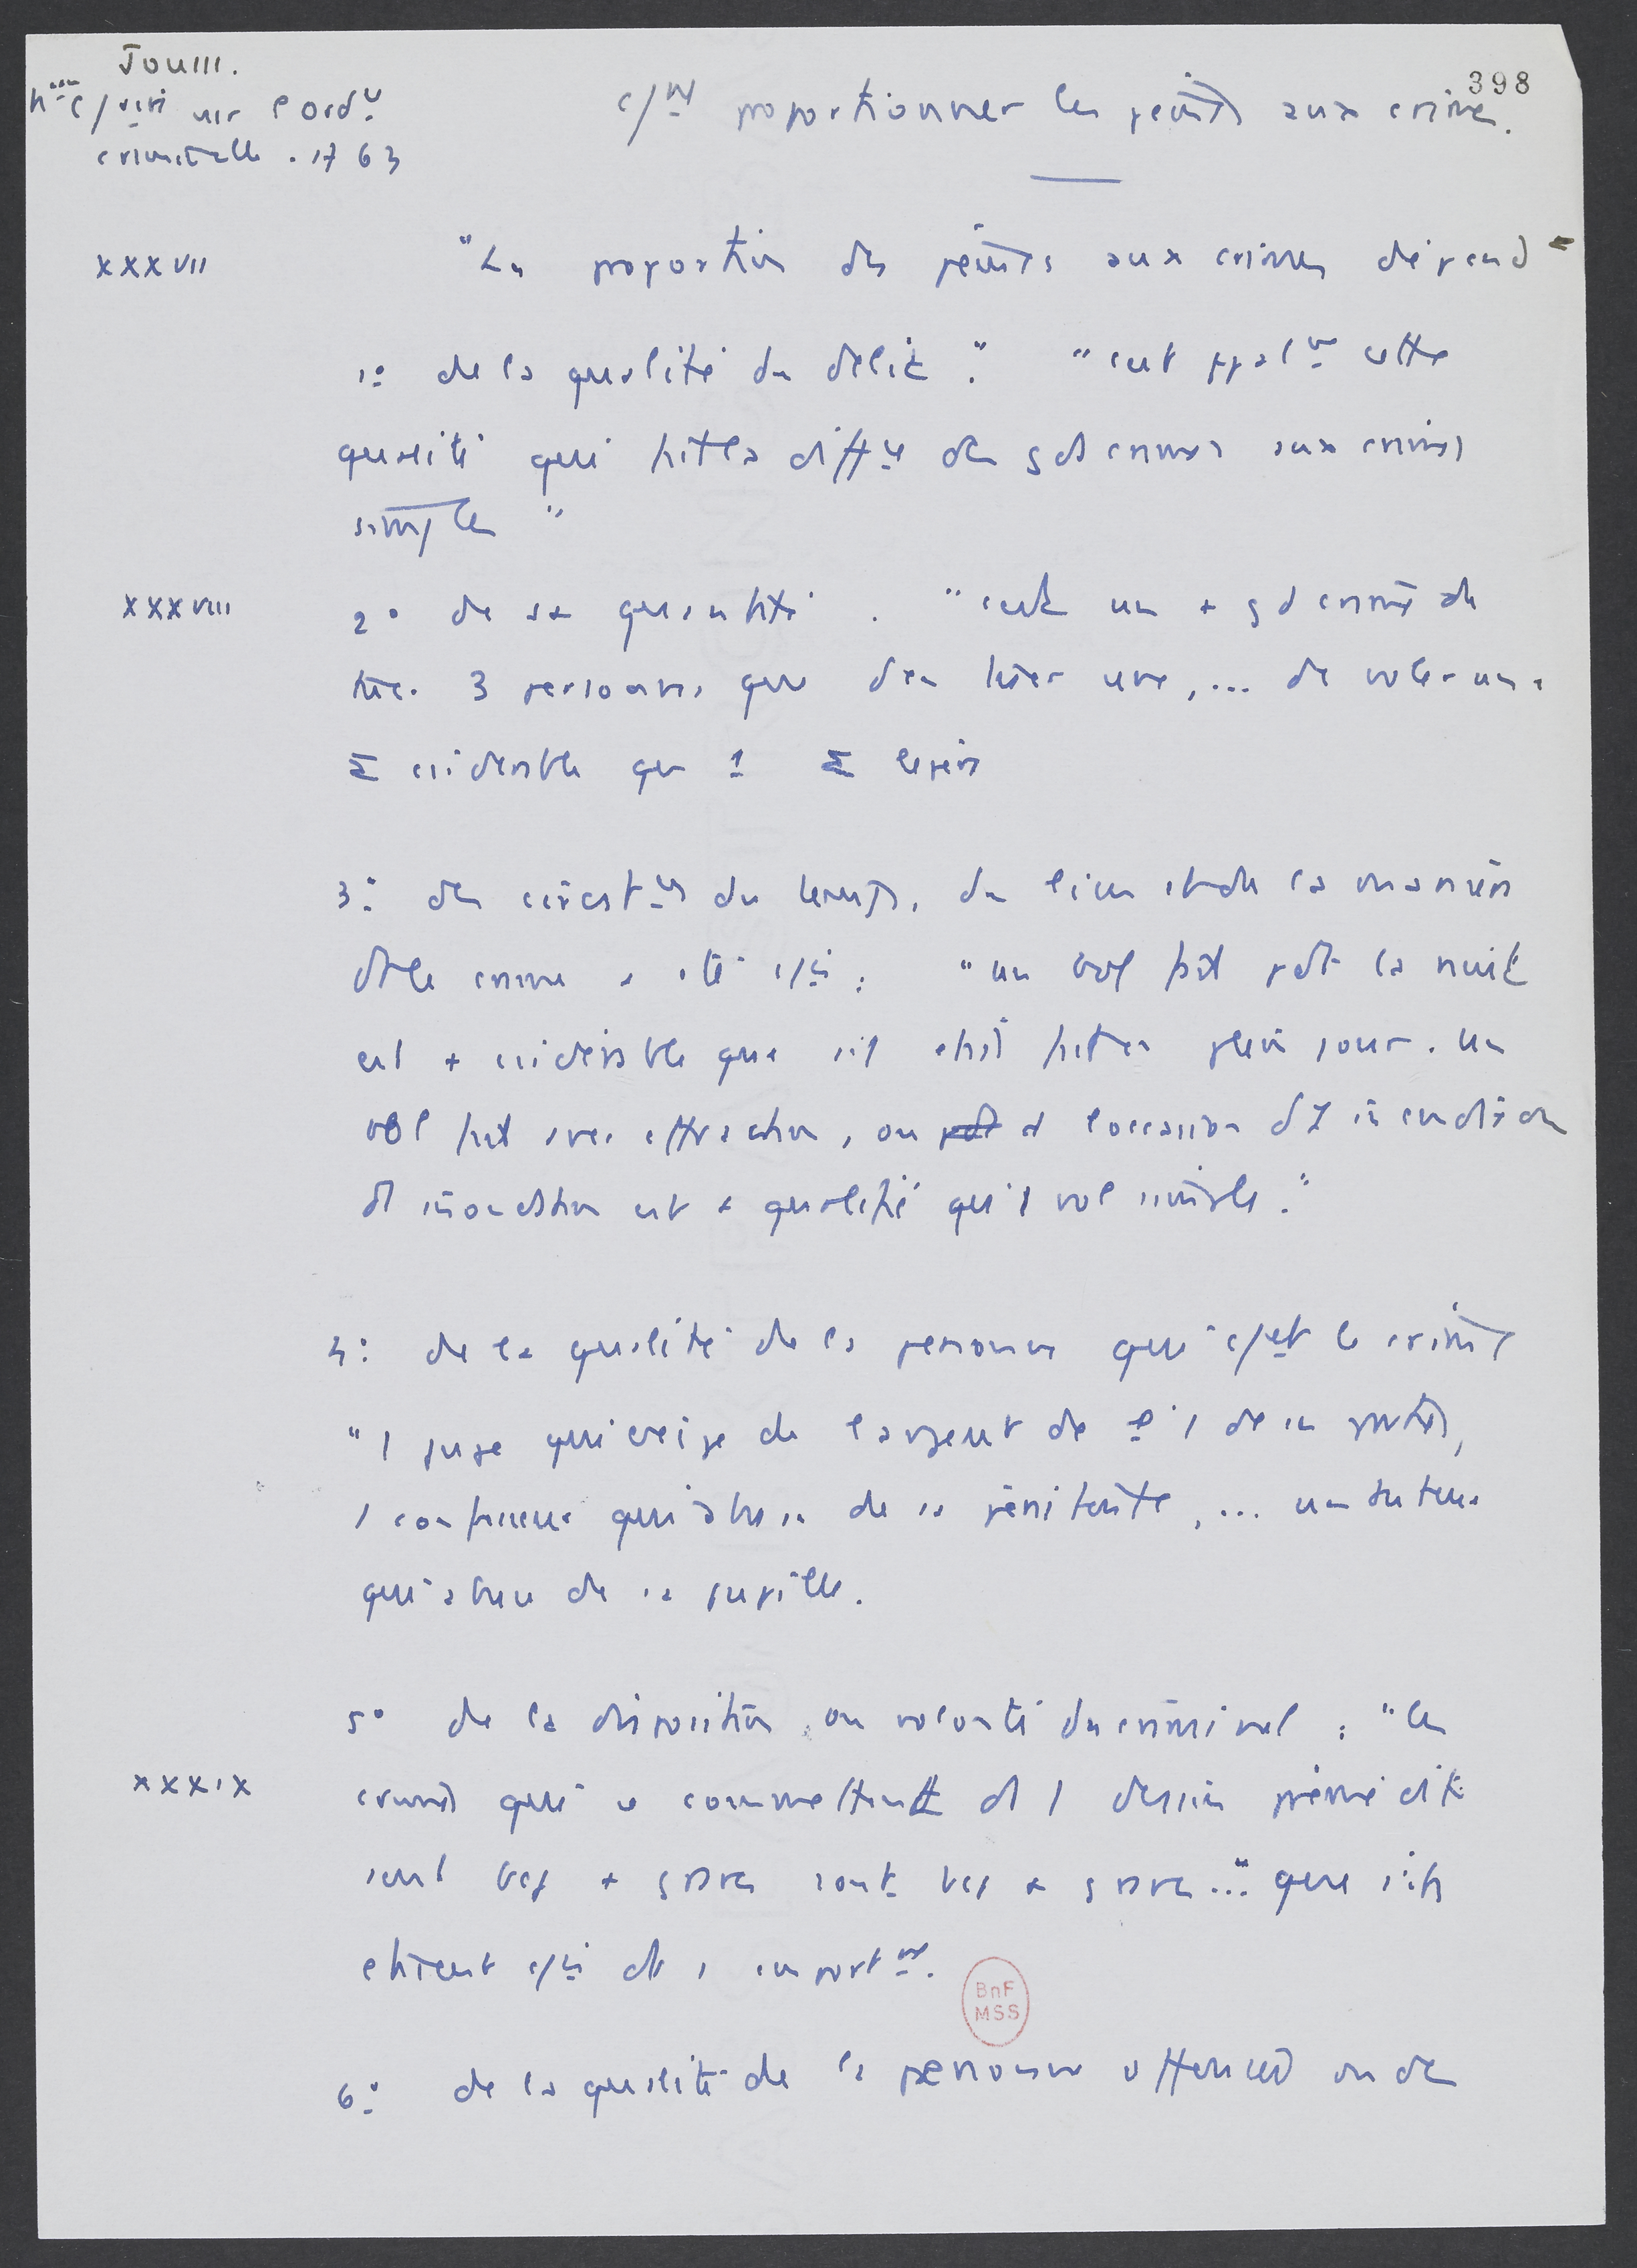 398
Jouss.
c/nt proportionner les peines aux crimes.
criminelle . 1763
XXXVII
"La proportion des peines aux crimes dépend
1° de la qualité du délit." "c'est ppalnt cette
qualité qui fait la diffce des gds crimes aux crimes
simples"
XXXVIII
2° de sa quantité. "c'est un + gd crime de
tuer 3 personnes que d'en tuer une, ... de voler une
Σ considérable que 1 Σ légère
3° des circstces du temps, du lieu et de la manière
dt le crime a été c/is : "un vol fait pdt la nuit
est + considérable que s'il était fait en plein jour. Un
vol fait avec effraction, ou pdt à l'occasion d'1 incendie ou
d'inondation est + qualifié qu'1 vol simple."
4° de la qualité de la personne qui c/et le crime
"1 juge qui exige de l'argent de l'1 de ses parties,
1 confesseur qui abuse de sa pénitente, ... un tuteur
qui abuse de sa pupille.
5° de la disposition ou volonté du criminel : "les
XXXIX
crimes qui se commettent ds 1 dessein prémédité
sont bcp + graves sont bcp + graves..." que s'ils
étaient c/is ds 1 emportnt.
BnF
MSS
6° de la qualité de la personne offensée ou de